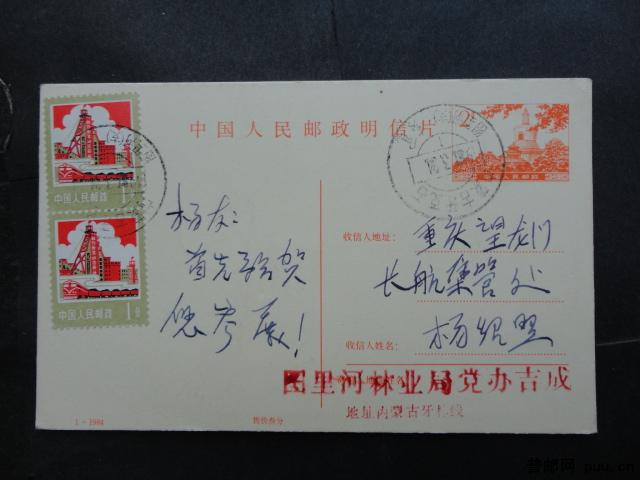 中国人民邮政明信片
中国人民邮政
1分
中国人民邮政
1分
杨友：
首先祝贺
您参展！
收信人地址：
重庆望龙门
长航集管处
收信人姓名：
杨绍照
图里河林业局党办吉成
地址内蒙古牙林线
1-1984
售价叁分
普邮网 puu.cn